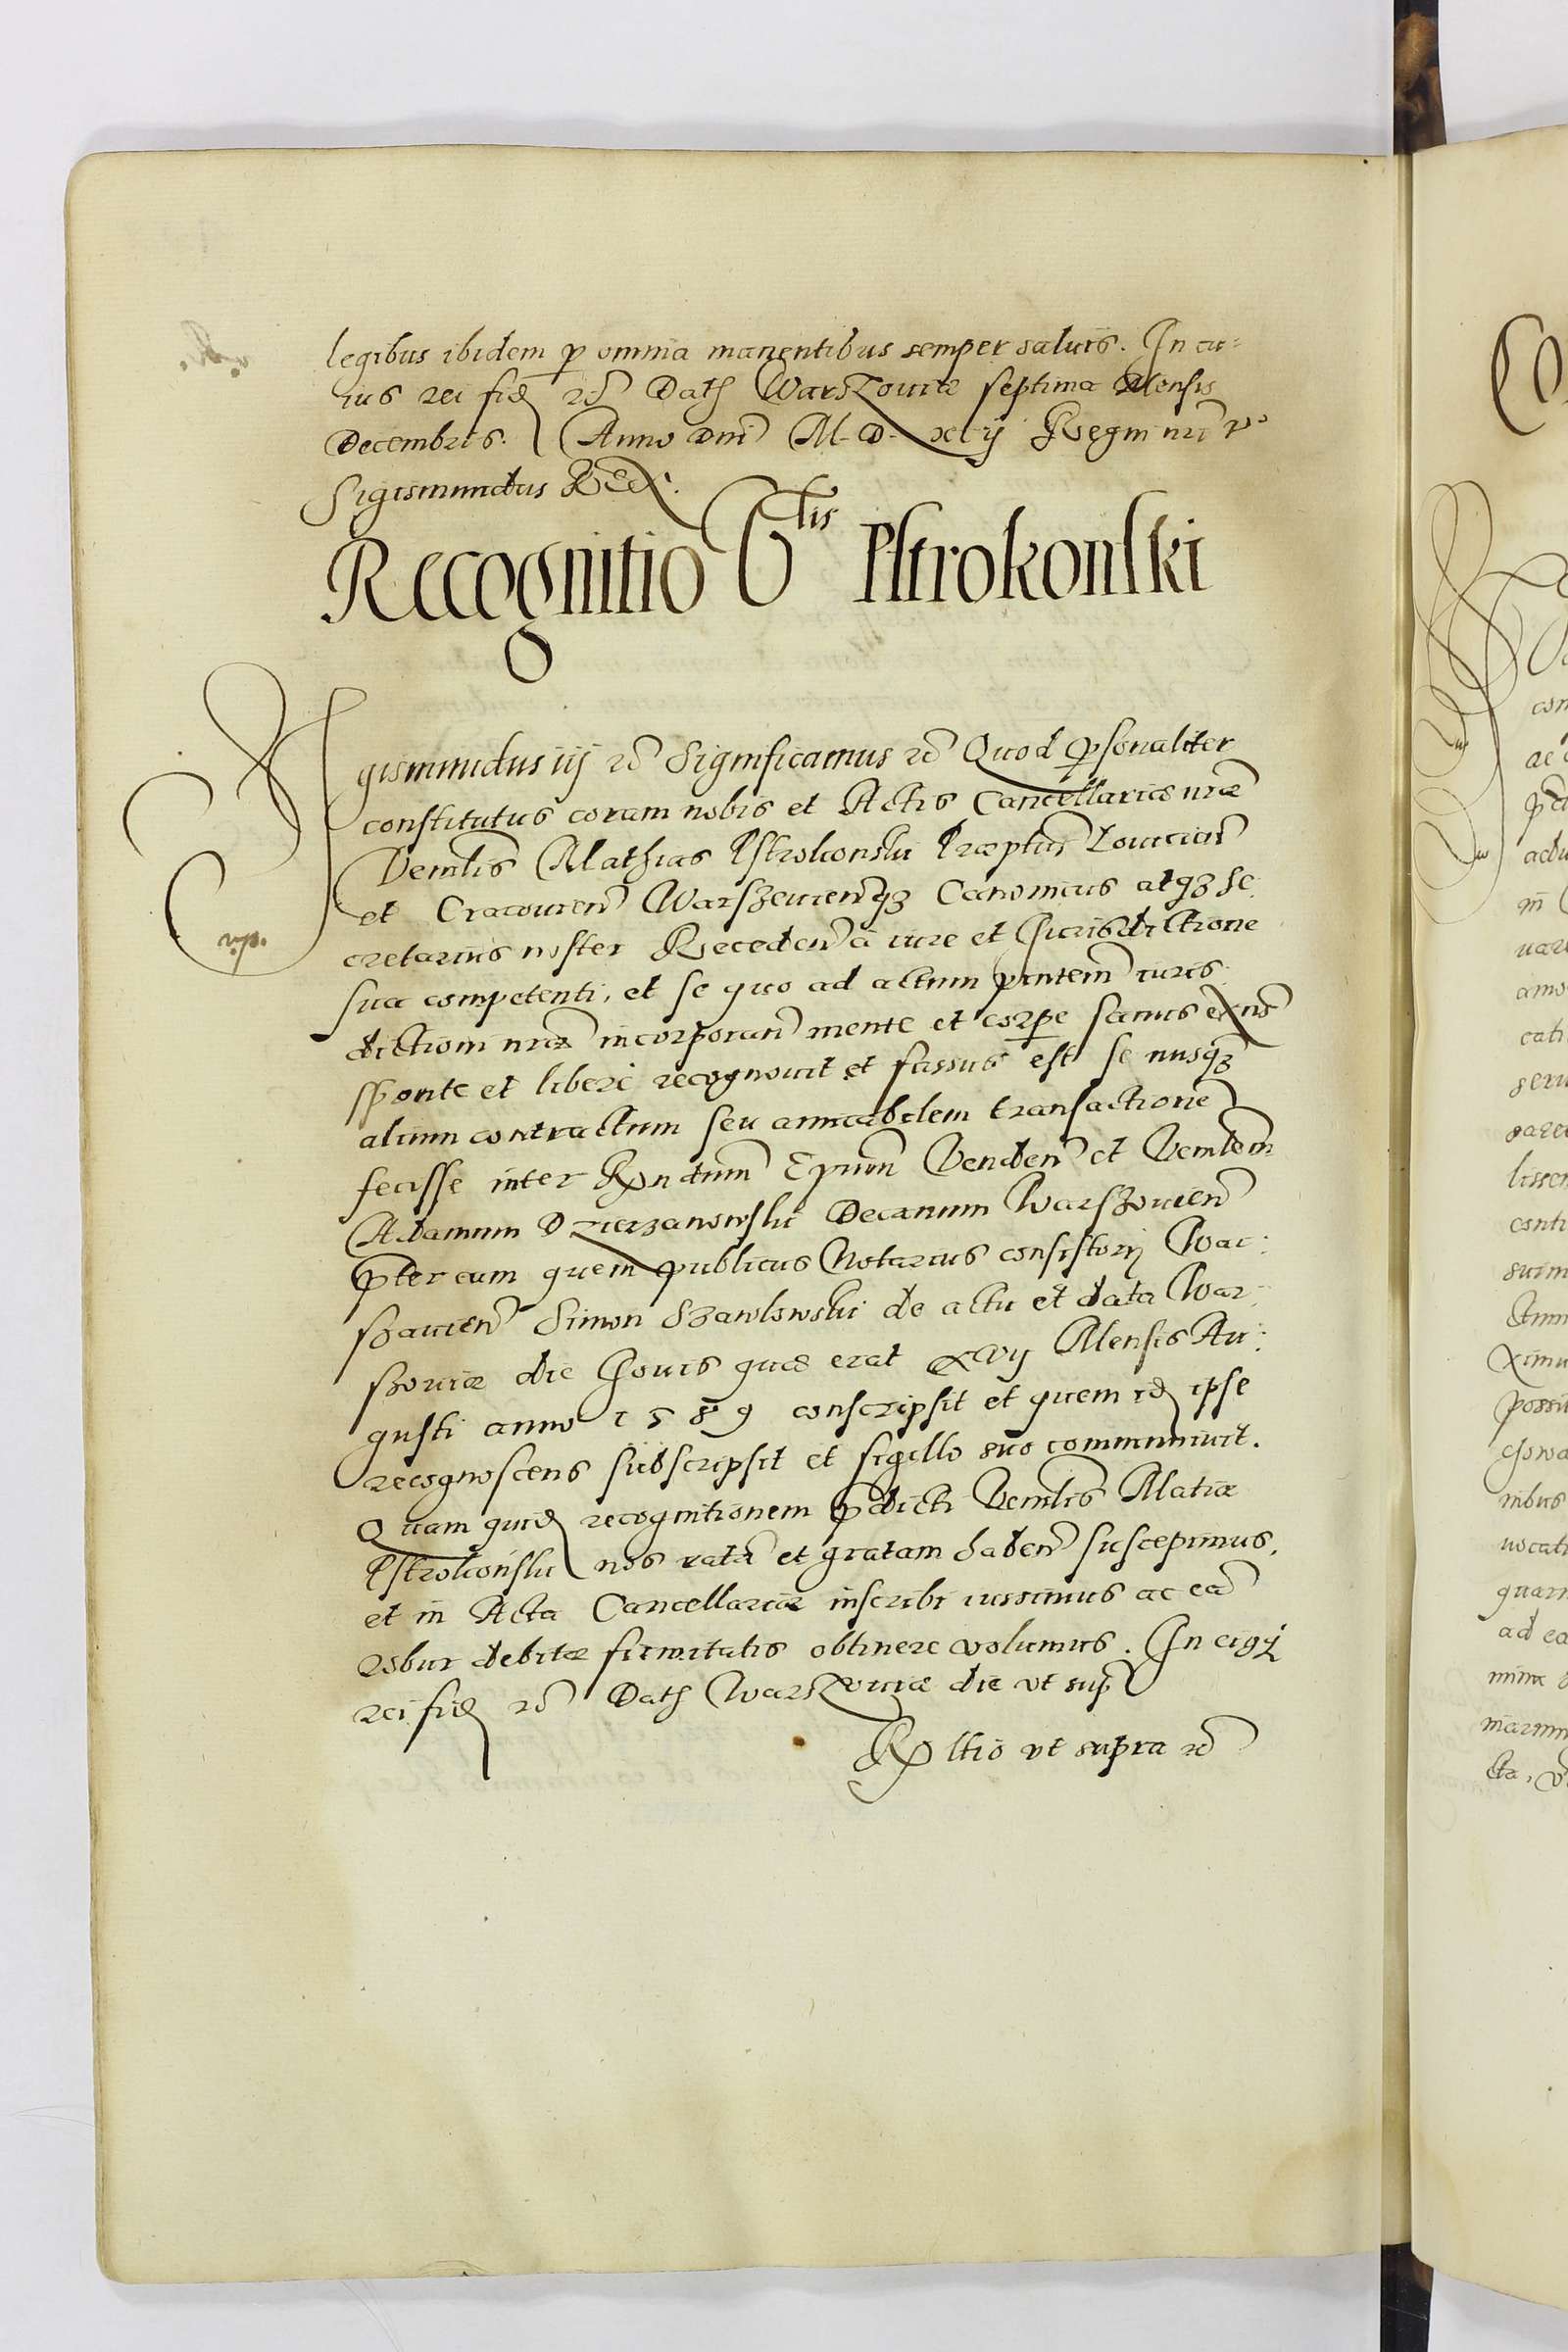 legibus ibidem p omnia manentibus semper saluis. In cu=
ius rei fid rc Dat Warszouiæ septima Mensis
Decembris. Anno Dni M. D. xcij Regni nri v°
Sigismundus Rex.
Recognitio Vlis Pstrokonski
Sigismundus iij rc Significamus rc Quod psonaliter
constitutus coram nobis et Actis Cancellariæ nræ
Venlis Mathias Pstrokonski Præptus Louician
et Cracouien Warszeuienqz Canonicus atqz Se:
cretarius noster Receden a iure et Jurisdictione
sua competenti, et se quo ad actum pntem iuris:
dictioni nræ incorporan mente et corpe sanus exns
sponte et libere recognouit et fassus est se nusqz
alium contractum seu amicabilem transactione
fecisse inter Rndum Epum Venden et Venlem
Adamum Dzierzanowski Decanum Warszouien
pter eum quem publicus Notarius consistorij War:
szauien Simon Szawlowski de actu et data War:
szouiæ die Jouis quæ erat xvij Mensis Au:
gusti anno 1589 conscripsit et quem id ipse
recognoscens subscripsit et sigillo suo communiuit.
Quam quid recognitionem pdicti Venlis Matiæ
Pstrokonski nos ratā et gratam haben suscepimus,
et in Acta Cancellariæ inscribi iussimus ac eā
robur debitæ firmitatis obtinere volumus. In cuqz
rei fid rc Dat Warszouiæ die vt sup
Rltio vt supra rc